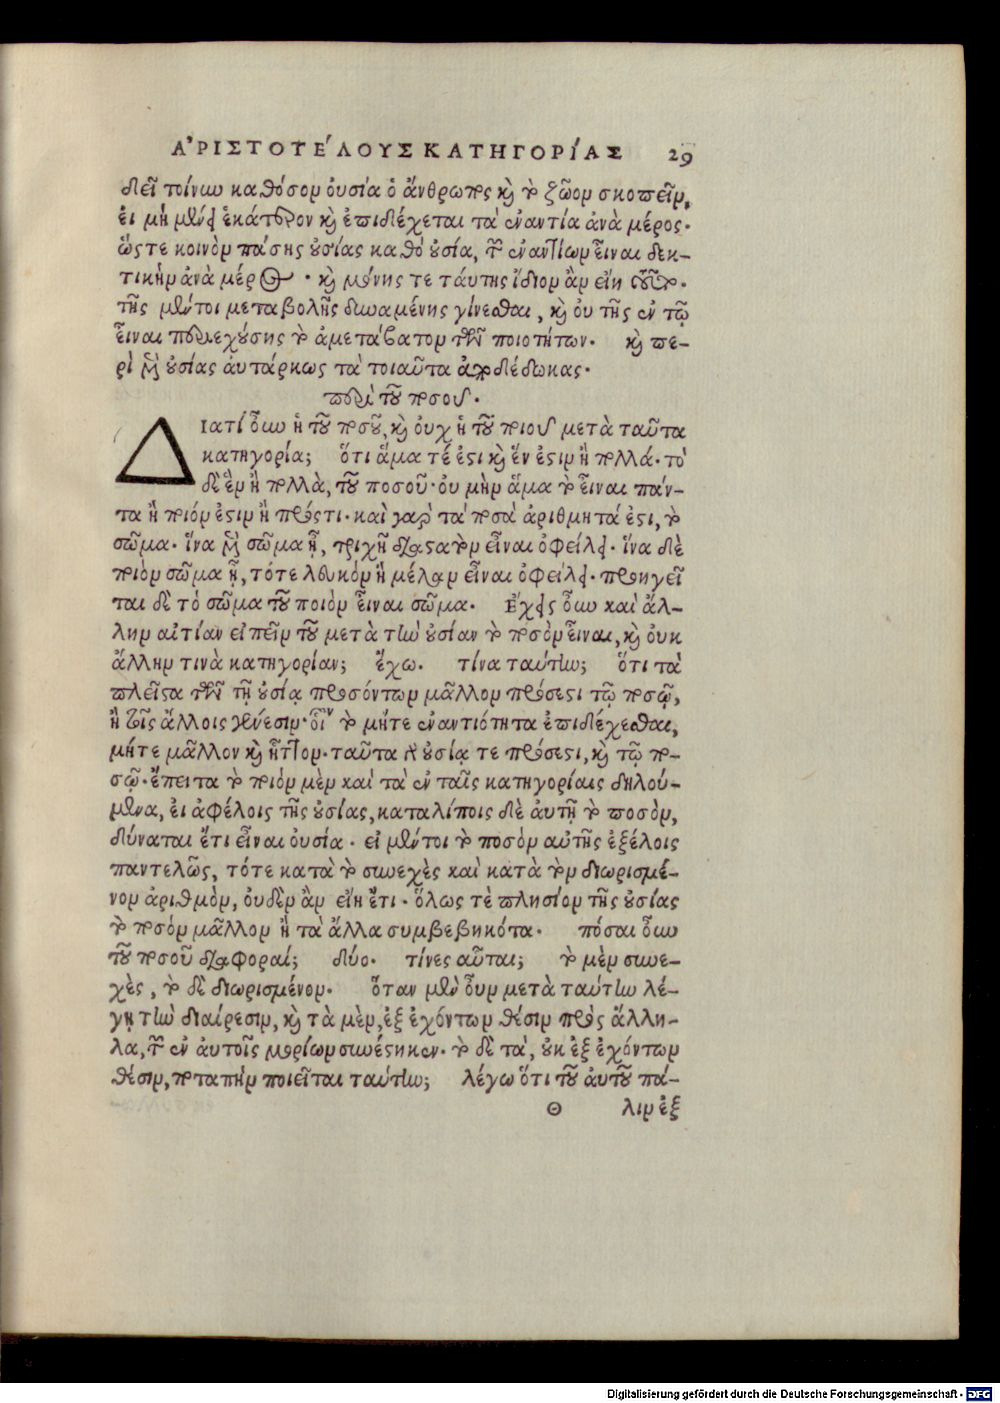 ἈΡΙΣΤΟΤΈΛΟΥΣ ΚΑΤΗΓΟΡΊΑΣ 29
δεῖ τοίνυν καθόσον οὐσία ὁ ἄνθρωπος καὶ τὸ ζῶον σκοπεῖν,
εἰ μὴ μένει ἑκάτερον καὶ ἐπιδέχεται τὰ ἐναντία ἀνὰ μέρος.
ὥστε κοινὸν πάσης οὐσίας καθὸ οὐσία, τῶν ἐναντίων εἶναι δεκ-
τικὴν ἀνὰ μέρος. καὶ μόνης τε ταύτης ἴδιον ἂν εἴη τοῦτο.
τῆς μέντοι μεταβολῆς δυναμένης γίνεσθαι, καὶ οὐ τῆς ἐν τῷ
εἶναι περιεχούσης τὸ ἀμετάβατον τῶν ποιοτήτων. καὶ πε-
ρὶ μὲν οὐσίας αὐτάρκως τὰ τοιαῦτα ἀποδέδωκας.
περὶ τοῦ ποσοῦ.
Διατί οὖν ἡ τοῦ ποσοῦ, καὶ οὐχ ἡ τοῦ ποιοῦ μετὰ ταῦτα
κατηγορία; ὅτι ἅμα τέ ἐστι καὶ ἕν ἐστιν ἢ πολλά. τὸ
δὲ ἓν ἢ πολλὰ, τοῦ ποσοῦ. οὐ μὴν ἅμα τὸ εἶναι πάν-
τα ἢ ποιόν ἐστιν ἢ πρός τι. καὶ γὰρ τὰ ποσὰ ἀριθμητά ἐστι, τὸ
σῶμα. ἵνα μὲν σῶμα ᾖ, τριχῇ διαστατὸν εἶναι ὀφείλει. ἵνα δὲ
ποιὸν σῶμα ᾖ, τότε λευκὸν ἢ μέλαν εἶναι ὀφείλει. προηγεῖ
ται δὲ τὸ σῶμα τοῦ ποιὸν εἶναι σῶμα. Ἔχεις οὖν καὶ ἄλ-
λην αἰτίαν εἰπεῖν τοῦ μετὰ τὴν οὐσίαν τὸ ποσὸν εἶναι, καὶ οὐκ
ἄλλην τινὰ κατηγορίαν; ἔχω. τίνα ταύτην; ὅτι τὰ
πλεῖστα τῶν τῇ οὐσίᾳ προσόντων μᾶλλον πρόσεστι τῷ ποσῷ,
ἢ τοῖς ἄλλοις γένεσιν. οἷον τὸ μήτε ἐναντιότητα ἐπιδέχεσθαι,
μήτε μᾶλλον καὶ ἧττον. ταῦτα τῇ οὐσίᾳ τε πρόσεστι, καὶ τῷ πο-
σῷ. ἔπειτα τὸ ποιὸν μὲν καὶ τὰ ἐν ταῖς κατηγορίαις δηλού-
μενα, εἰ ἀφέλοις τῆς οὐσίας, καταλίποις δὲ αὐτῇ τὸ ποσὸν,
δύναται ἔτι εἶναι οὐσία. εἰ μέντοι τὸ ποσὸν αὐτῆς ἐξέλοις
παντελῶς, τότε κατὰ τὸ συνεχὲς καὶ κατὰ τὸν διωρισμέ-
νον ἀριθμὸν, οὐδὲν ἂν εἴη ἔτι. ὅλως τὲ πλησίον τῆς οὐσίας
τὸ ποσὸν μᾶλλον ἢ τὰ ἄλλα συμβεβηκότα. πόσαι οὖν
τοῦ ποσοῦ διαφοραί; δύο. τίνες αὗται; τὸ μὲν συνε-
χὲς, τὸ δὲ διωρισμένον. ὅταν μὲν οὖν μετὰ ταύτην λέ-
γῃ τὴν διαίρεσιν, καὶ τὰ μὲν, ἐξ ἐχόντων θέσιν πρὸς ἄλλη-
λα, τῶν ἐν αὐτοῖς μορίων συνέστηκεν. τὸ δὲ τὰ, οὐκ ἐξ ἐχόντων
θέσιν, ποταπὴν ποιεῖται ταύτην; λέγω ὅτι τοῦ αὐτοῦ πά-
Θ λιν ἐξ
Digitalisierung gefördert durch die Deutsche Forschungsgemeinschaft - DFG